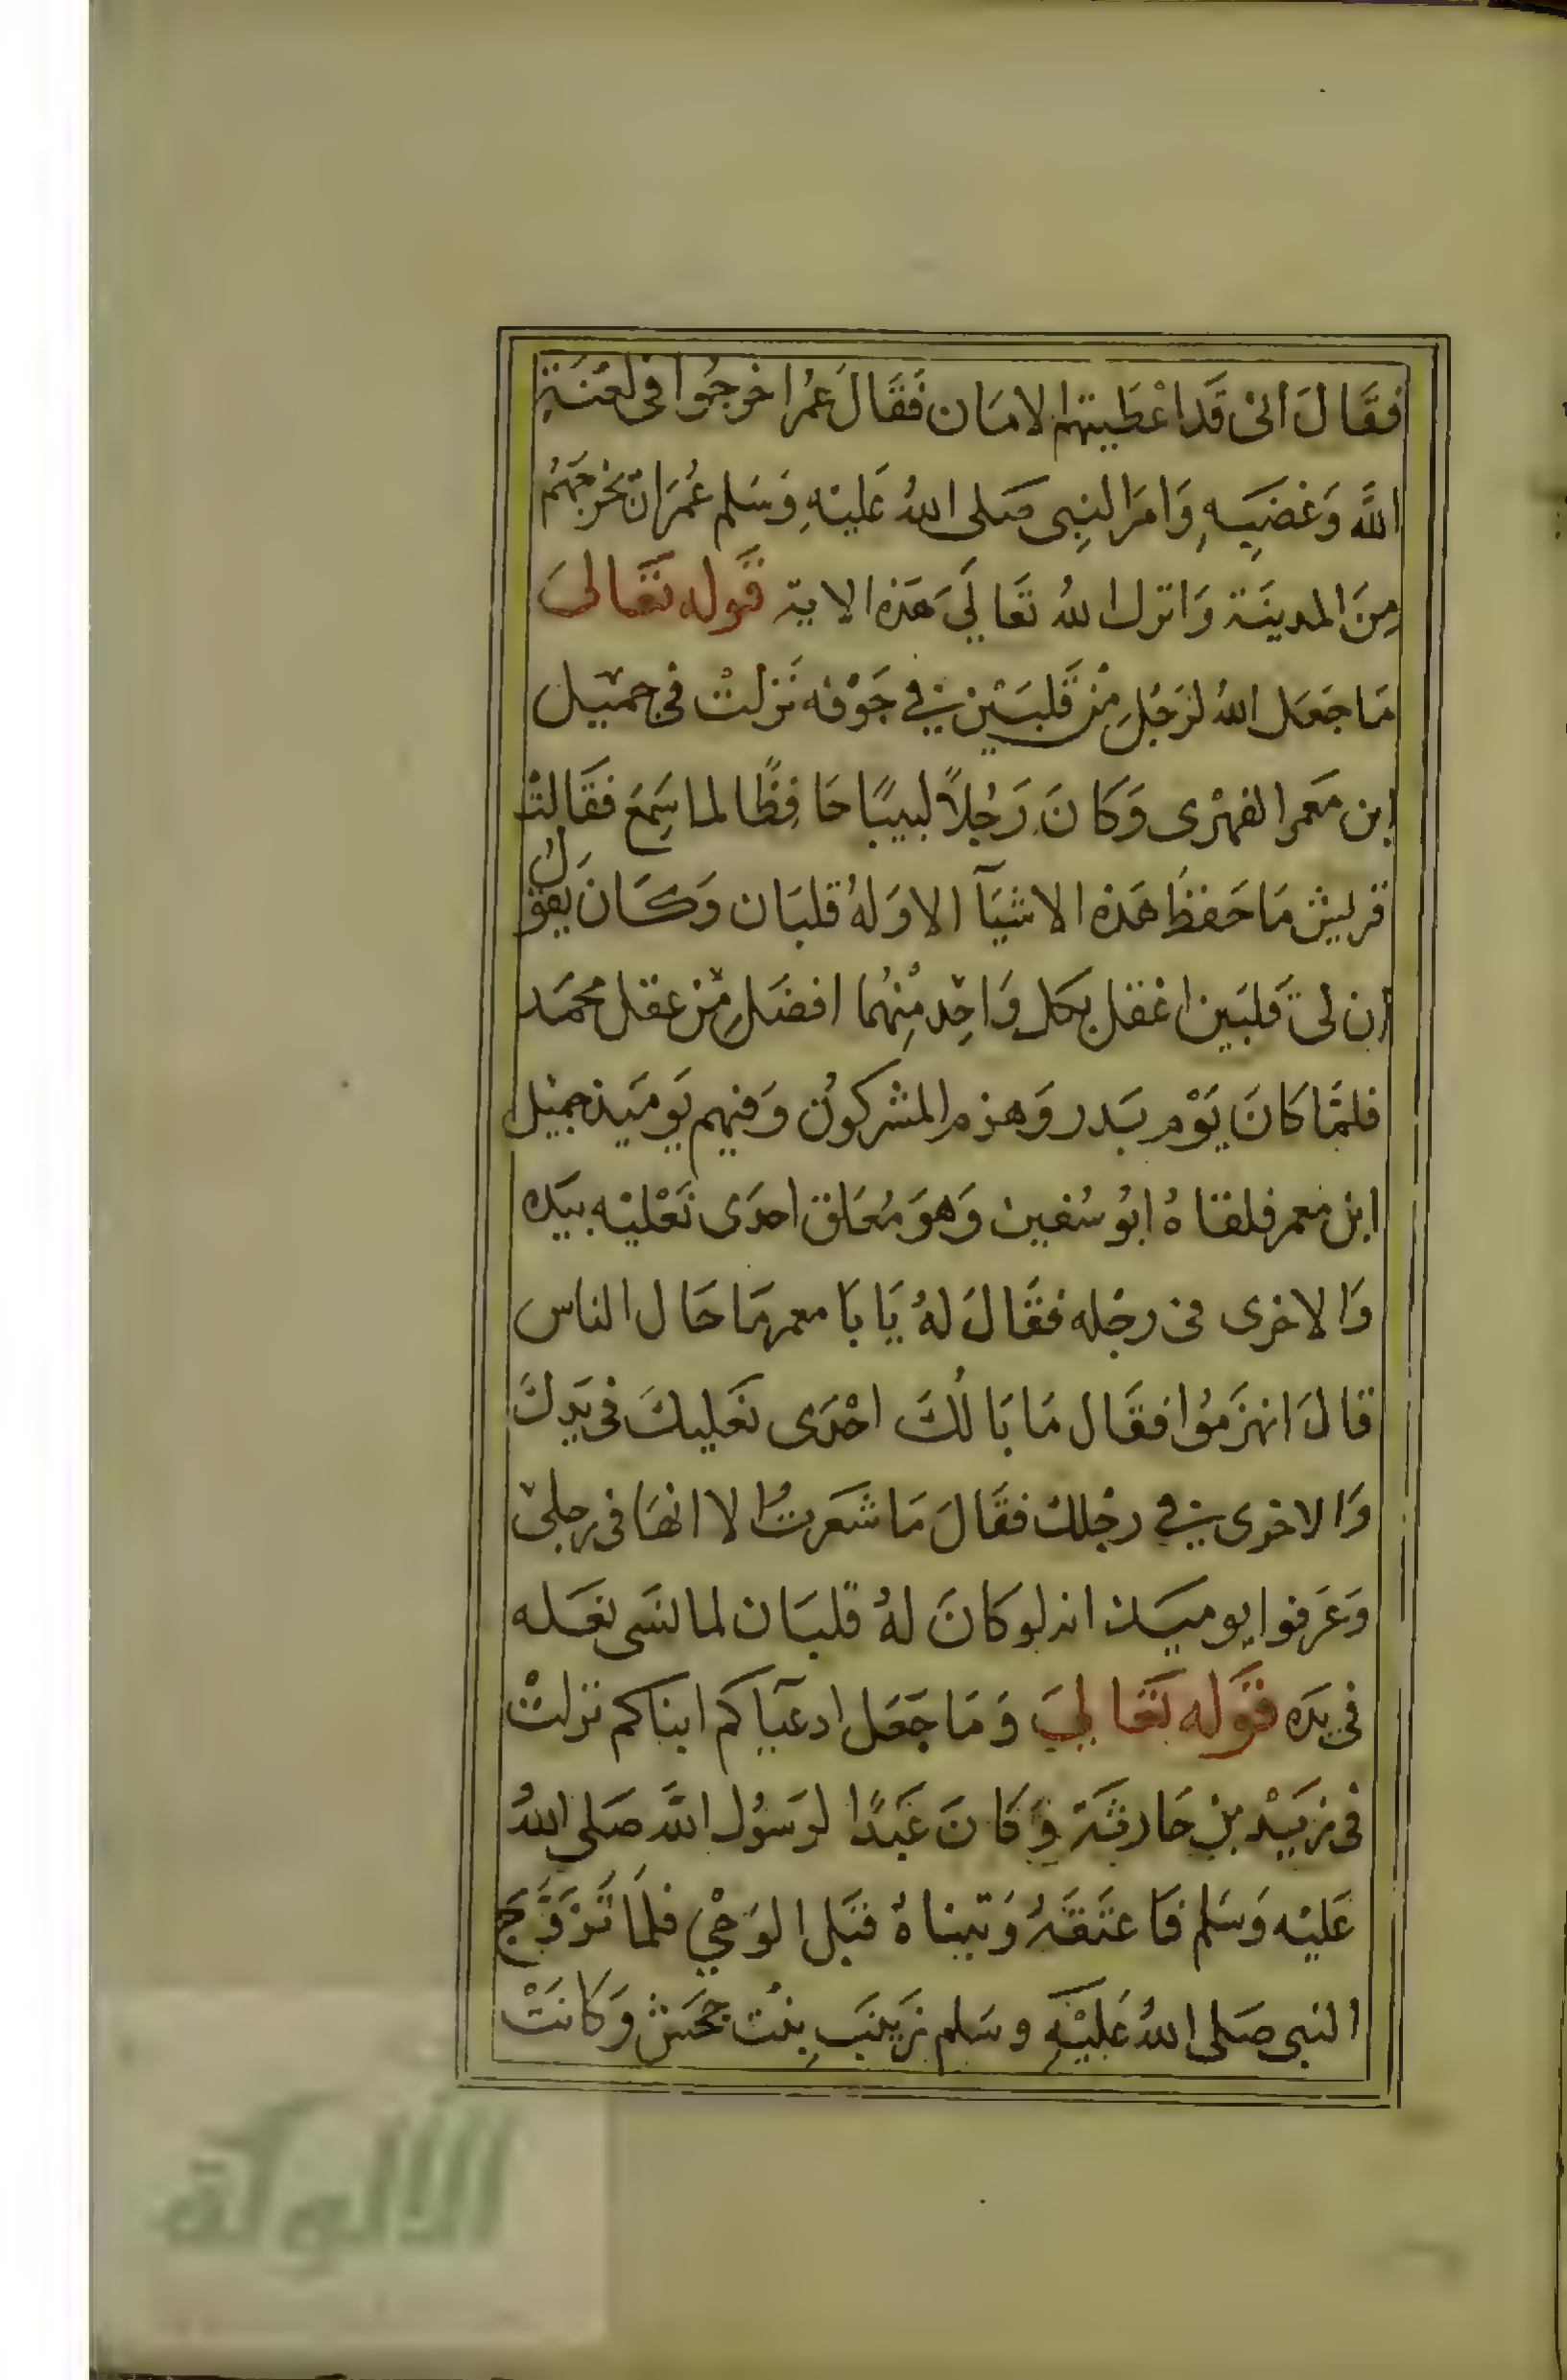 فقَالَ انى قَد اعْطَيتهم الامَان فَقَالَ عمُر اخرجُوا فى لعْنَةِ
اللَّه وَغضَبِهِ وَامَر النبِى صَلى اللهُ عَليْهِ وَسَلم عُمَر ان يخرجَهُم
مِنَ المدينَة وَانزل اللهُ تعَالَى هَذه الاية قَوله تعَالىَ
مَا جَعَل اللهُ لرَجُلِ مِنْ قَلبَيْن فِي جَوْفه نَزلتْ فى جميل
ابن مَعمر الفهْرى وَكَانَ رَجُلاً لبيبًا حَافِظًا لما سَمِعَ فقَالتْ
قريش مَا حَفظَ هَذه الاشيَآ الا وَلهُ قلبَان وَكَانَ يقول
ان لى قَلبَين اعقل بكل وَاحِد مِنهُما افضَل مِنْ عقل محمَد
فلمَّا كانَ يَوْم بَدر وَهزم المشركونُ وَفيهم يَوميَذ جميْل
ابن معمر فلقاهُ ابُو سُفين وَهوَ مُعَلق احدَى نَعْليْه بيَده
وَالاخرى فى رجْله فقَالَ لهُ يَا بَا معمر مَا حَال الناس
قالَ انهزَمُوا فقَال مَا بَالُكَ احْدَى نعَليكَ فى يَدِكَ
وَالاخرى فِي رجْلك فقَالَ مَا شعَرتُ الا انهَا فى رجلىْ
وَعَرفوا يوميَذ انه لو كانَ لهُ قلبَان لما نسَى نعَله
فى يَده قَوله تعَالِيَ وَمَا جَعَل ادعيَآكم ابناكم نزلتْ
فى زيَيْد بنْ حَارثَة وَكانَ عَبدًا لرَسُول اللَّه صَلى اللهُ
عَليْه وَسَلم فَاعتَقَهُ وَتبناهُ قبَل الوَحْي فلَمَا تَزَوَّجَ
النبى صَلى اللهُ عَليْهِ وسَلم زَينَبِ بِنُت جحَش وَكانتْ
الألوكة